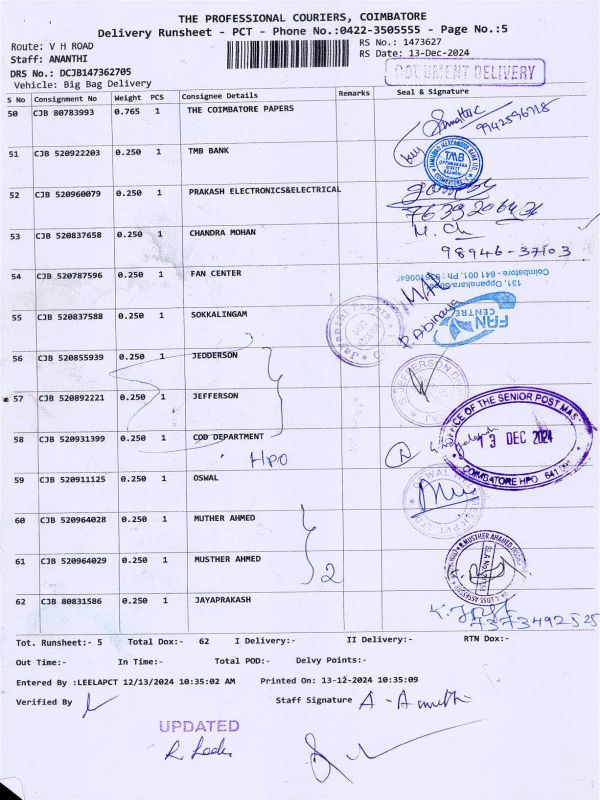 THE PROFESSIONAL COURIERS, COIMBATORE
Delivery Runsheet - PCT - Phone No.:0422-3505555 - Page No.:5
Route: V H ROAD
RS No.: 1473627
Staff: ANANTHI
RS Date: 13-Dec-2024
DRS No.: DCJB147362705
DOCUMENT DELIVERY
Vehicle: Big Bag Delivery
S No Consignment No Weight PCS Consignee Details Remarks Seal & Signature
50 CJB 80783993 0.765 1 THE COIMBATORE PAPERS
9942596718
51 CJB 520922203 0.250 1 TMB BANK
TMB
52 CJB 520960079 0.250 1 PRAKASH ELECTRONICS&ELECTRICAL
53 CJB 520837658 0.250 1 CHANDRA MOHAN
M. Ch
98946-37103
54 CJB 520787596 0.250 1 FAN CENTER
131, Oppanakara Street
Coimbatore - 641 001. Ph :
FAN
CENTRE
55 CJB 520837588 0.250 1 SOKKALINGAM
56 CJB 520855939 0.250 1 JEDDERSON
57 CJB 520892221 0.250 1 JEFFERSON
58 CJB 520931399 0.250 1 COD DEPARTMENT
HPO
OFFICE OF THE SENIOR POST MAS
13 DEC 2024
COIMBATORE HPO 641 001
59 CJB 520911125 0.250 1 OSWAL
60 CJB 520964028 0.250 1 MUTHER AHMED
61 CJB 520964029 0.250 1 MUSTHER AHMED
2
62 CJB 80831586 0.250 1 JAYAPRAKASH
7373492525
Tot. Runsheet:- 5 Total Dox:- 62 I Delivery:- II Delivery:- RTN Dox:-
Out Time:- In Time:- Total POD:- Delvy Points:-
Entered By :LEELAPCT 12/13/2024 10:35:02 AM Printed On: 13-12-2024 10:35:09
Verified By Staff Signature A - Ananthi
UPDATED